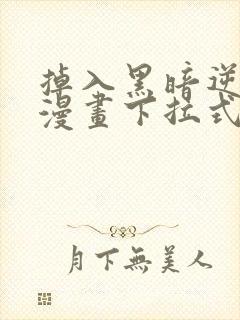 掉入黑暗逆
漫畫下拉式
月下無美人